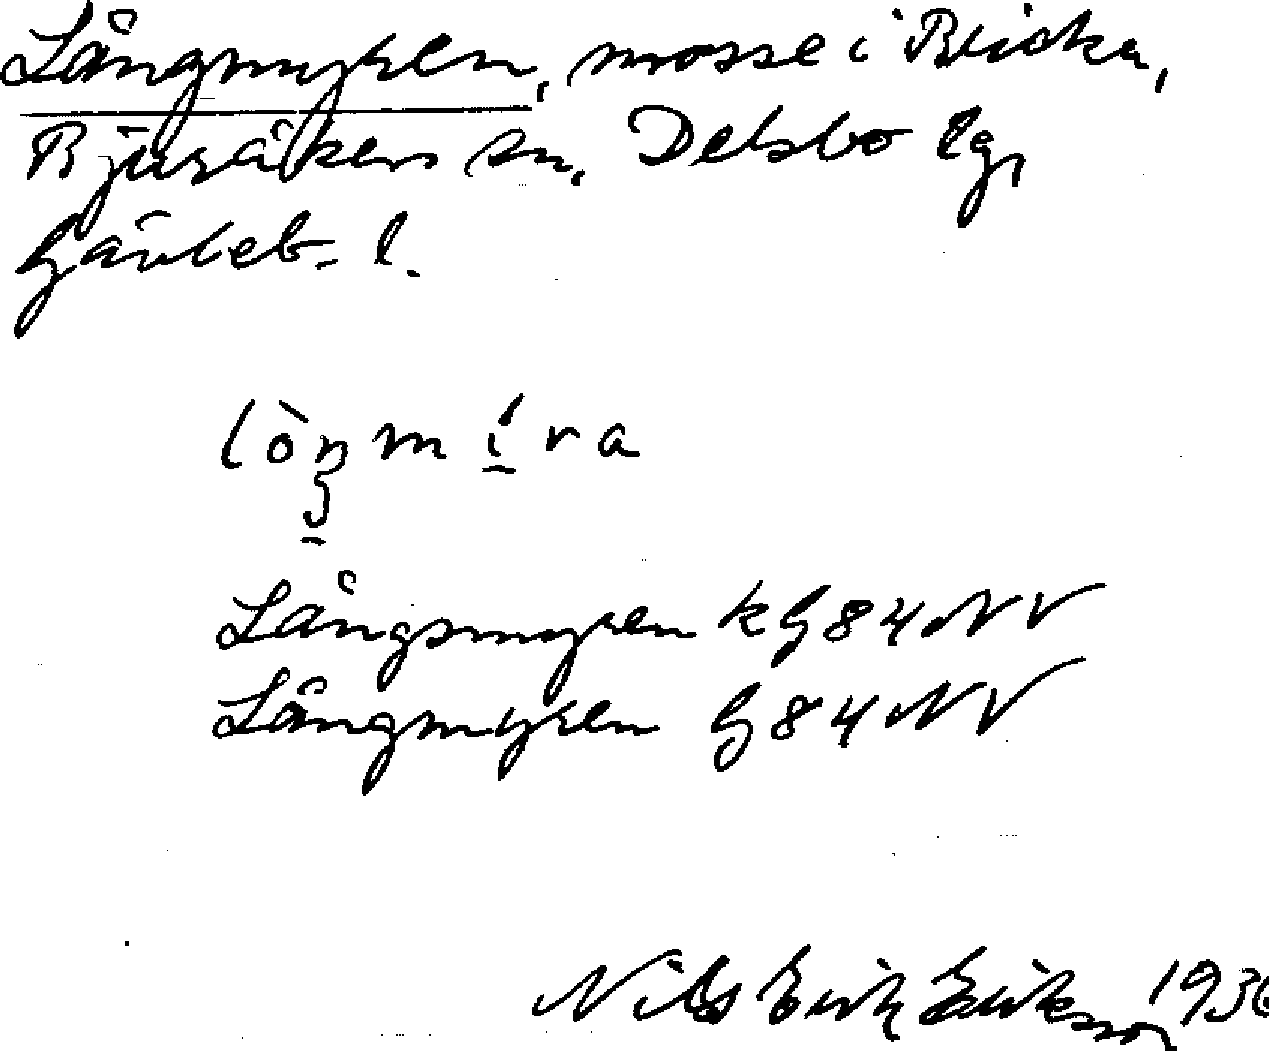 Långmyren, mosse i Bricka,
Bjuråkers sn, Delsbo tg,
Gävleb. l.
Långsmyren k G 84 NV
Långmyren G 84 NV
Nils Erik Erikson 1936